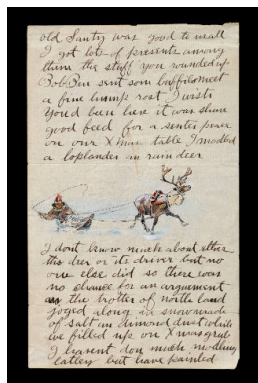 old Santy was good to us all
I got lots of presents among
them the stuff you rounded up
Bob Ben sent som buffilo meet
a fine hump rost I wish
you'd been here it was shure
good feed for a senter peace
on our Xmas table I modled
a loplander an rain deer
I dont know much about ether
this deer or its driver but no
one else did so there was
no chance for an arguement
as the trotter of north land
joged along in snow made
of salt an dimond dust while
we filled up on Xmas grub
I havent don much modling
lattely but have painted